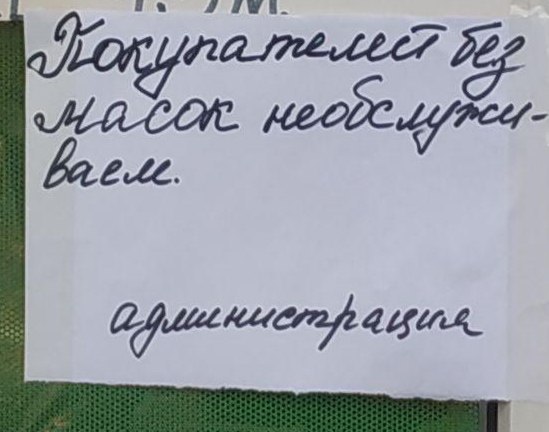 Покупателей без
масок необслужи-
ваем.
администрация